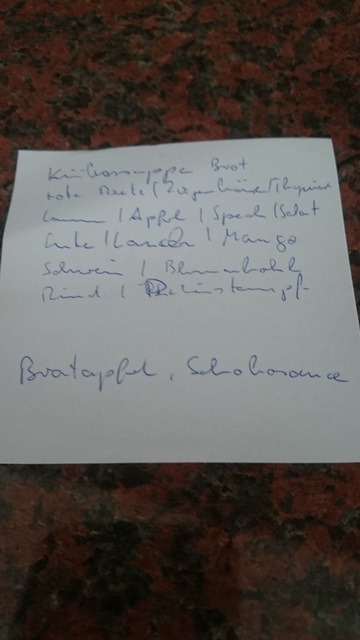 Kürbissuppe Brot
rote Beete / Ziegenkäse / Thymian
/ Apfel / Speck / Salat
Ente / Lauch / Mango
Schwein / Blumenkohl
Rind /
Bratapfel, Schokosauce